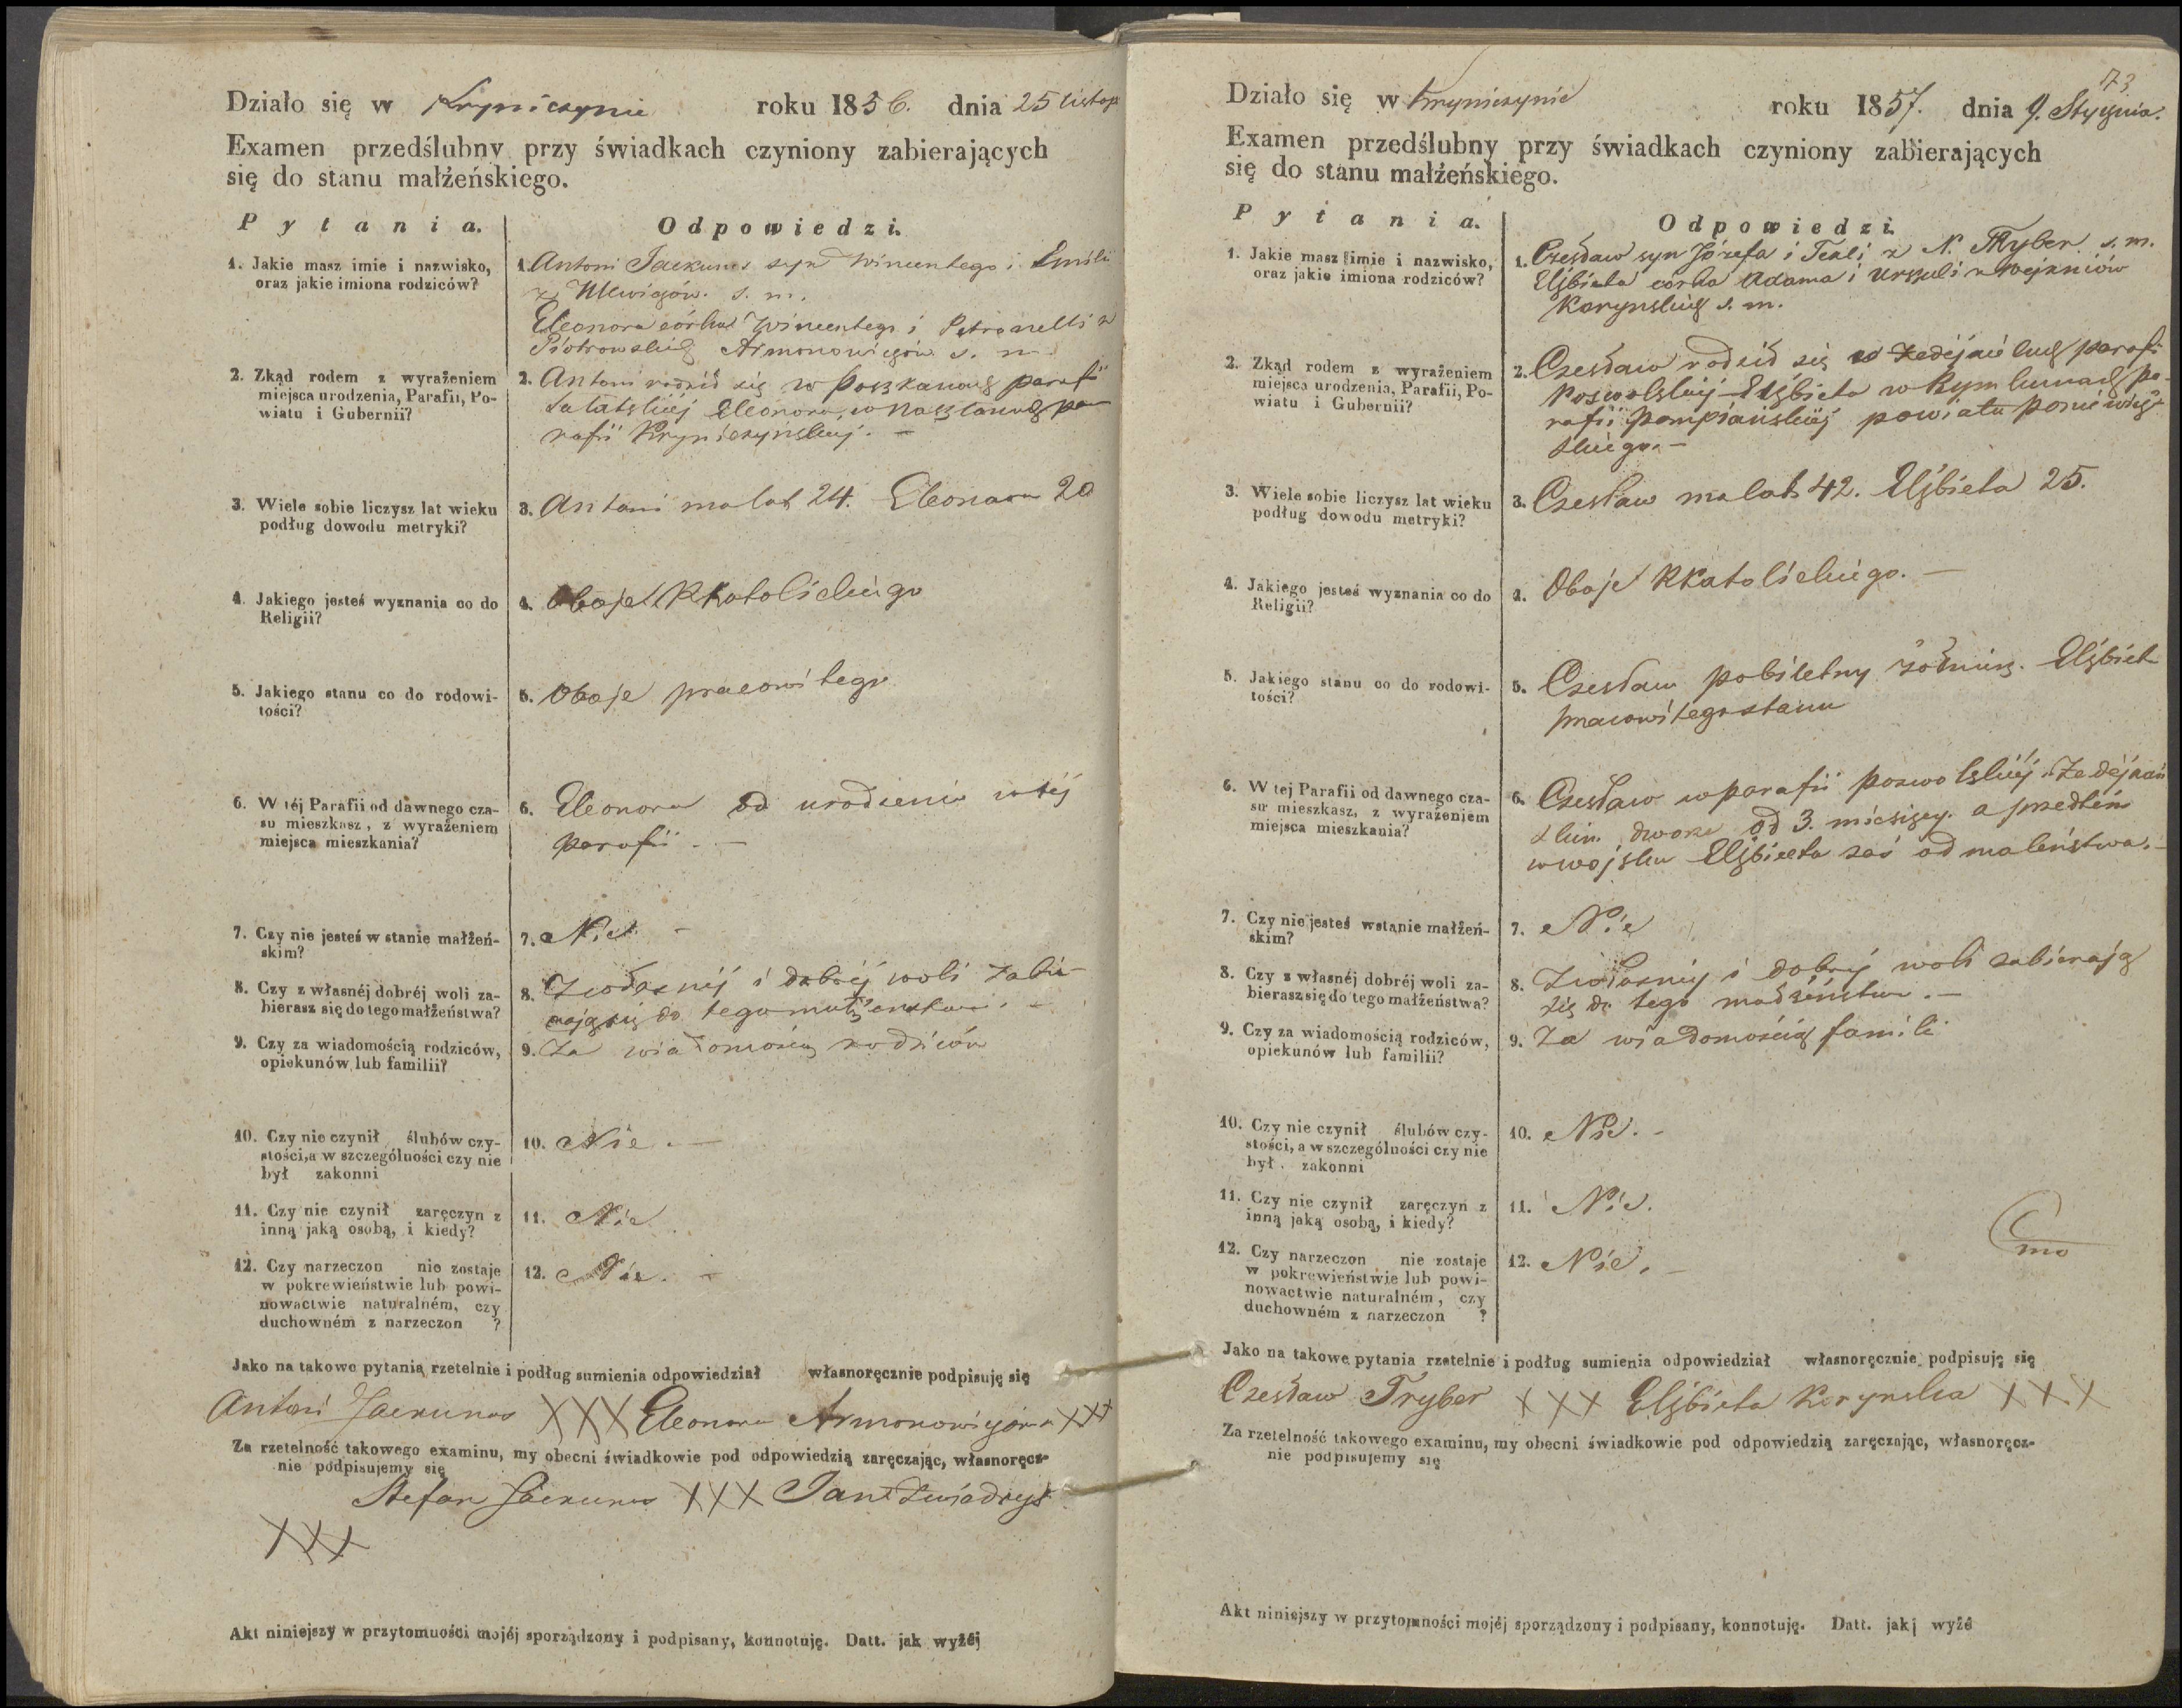 Działo się w Kryniczynie roku 1856. dnia 25 Listop
Examen przedślubny przy świadkach czyniony zabierających
się do stanu małżeńskiego.
Pytania. Odpowiedzi.
1. Jakie masz imie i nazwisko,
oraz jakie imiona rodziców?
1. Antoni Jackunas syn Wincentego i Emilii
s. m.
Eleonora córka Wincentego i Petronelli z
Piotrowskich Armonowiczów s. m.
2. Zkąd rodem z wyrażeniem
miejsca urodzenia, Parafii, Po-
wiatu i Gubernii?
2. Antoni rodził się w parafii
Eleonora w pa
rafii Kryniczyńskiej. —
3. Wiele sobie liczysz lat wieku
podług dowodu metryki?
3. Antoni ma lat 24. Eleonora 20
4. Jakiego jesteś wyznania co do
Religii?
4. Oboje RKatolickiego
5. Jakiego stanu co do rodowi-
tości?
5. Oboje pracowitego
6. W téj Parafii od dawnego cza-
su mieszkasz, z wyrażeniem
miejsca mieszkania?
6. Eleonora od urodzenia w téj
parafii. —
7. Czy nie jesteś w stanie małżeń-
skim?
7. Nie. —
8. Czy z własnéj dobréj woli za-
bierasz się do tego małżeństwa?
8. Z własnéj i dobréj woli zabie-
rają się do tego małżeństwa. —
9. Czy za wiadomością rodziców,
opiekunów lub familii?
9. Za wiadomością rodziców
10. Czy nie czynił ślubów czy-
stości, a w szczególności czy nie
był zakonni
10. Nie. —
11. Czy nie czynił zaręczyn z
inną jaką osobą, i kiedy?
11. Nie.
12. Czy narzeczon nie zostaje
w pokrewieństwie lub powi-
nowactwie naturalném, czy
duchowném z narzeczon ?
12. Nie. —
Jako na takowe pytania rzetelnie i podług sumienia odpowiedział własnoręcznie podpisuję się
Antoni Jackunas XXX Eleonora Armonowiczówna XXX
Za rzetelność takowego examinu, my obecni świadkowie pod odpowiedzią zaręczając, własnoręcz-
nie podpisujemy się
Stefan Jackunas XXX Jan
XXX
Akt niniejszy w przytomności mojéj sporządzony i podpisany, konnotuję. Datt. jak wyżéj
73
Działo się w Kryniczynie roku 1857. dnia 9. Stycznia.
Examen przedślubny przy świadkach czyniony zabierających
się do stanu małżeńskiego.
Pytania. Odpowiedzi.
1. Jakie masz imie i nazwisko,
oraz jakie imiona rodziców?
1. Czesław syn Józefa i Tekli z N. Tryber s. m.
Elżbieta córka Adama i Urszuli z
Karynskich s. m.
2. Zkąd rodem z wyrażeniem
miejsca urodzenia, Parafii, Po-
wiatu i Gubernii?
2. Czesław rodził się w parafii
Poswolskiéj Elżbieta w pa-
rafii Pompiańskiéj powiatu Poniewież-
skiego. —
3. Wiele sobie liczysz lat wieku
podług dowodu metryki?
3. Czesław ma lat 42. Elżbieta 25.
4. Jakiego jesteś wyznania co do
Religii?
4. Oboje RKatolickiego. —
5. Jakiego stanu co do rodowi-
tości?
5. Czesław pobiletny żołnierz. Elżbieta
pracowitego stanu
6. W tej Parafii od dawnego cza-
su mieszkasz, z wyrażeniem
miejsca mieszkania?
6. Czesław w parafii poswolskiéj
dworze od 3. miesięcy. a przedtém
w wojsku Elżbieta zaś od maleństwa. —
7. Czy nie jesteś wstanie małżeń-
skim?
7. Nie
8. Czy z własnéj dobréj woli za-
bierasz się do tego małżeństwa?
8. Z własnéj i dobréj woli zabierają
się do tego małżeństwa. —
9. Czy za wiadomością rodziców,
opiekunów lub familii?
9. Za wiadomością famili
10. Czy nie czynił ślubów czy-
stości, a w szczególności czy nie
był zakonni
10. Nie. —
11. Czy nie czynił zaręczyn z
inną jaką osobą, i kiedy?
11. Nie.
12. Czy narzeczon nie zostaje
w pokrewieństwie lub powi-
nowactwie naturalném, czy
duchowném z narzeczon ?
12. Nie. —
Jako na takowe pytania rzetelnie i podług sumienia odpowiedział własnoręcznie podpisuję się
Czesław Tryber XXX Elżbieta Karynska XXX
Za rzetelność takowego examinu, my obecni świadkowie pod odpowiedzią zaręczając, własnoręcz-
nie podpisujemy się
Akt niniejszy w przytomności mojéj sporządzony i podpisany, konnotuję. Datt. jakj wyżé